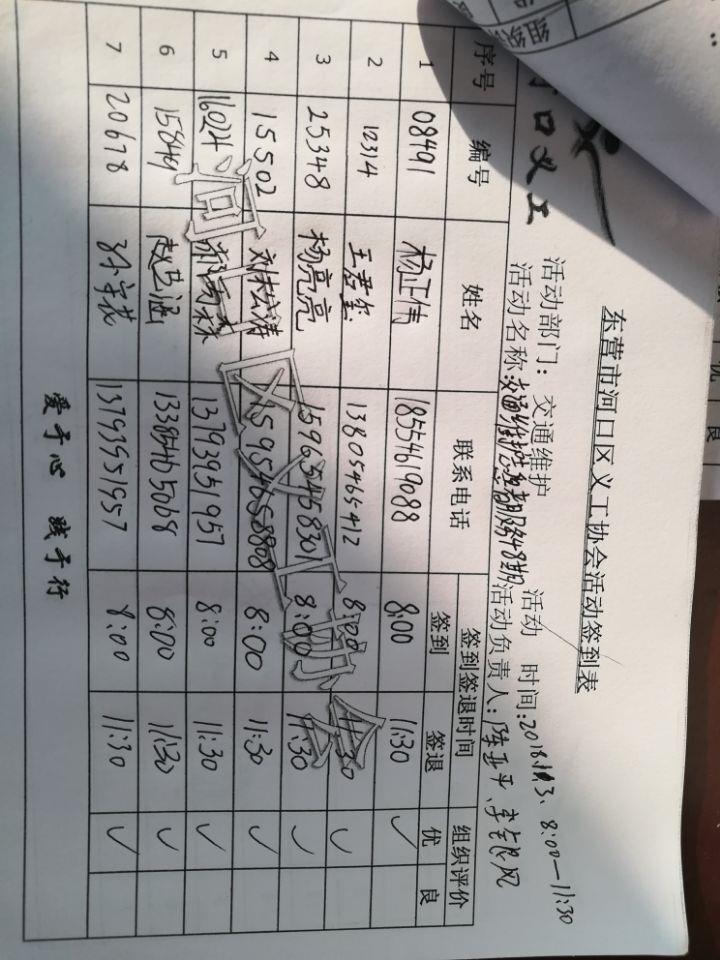 东营市河口区义工协会活动签到表
活动部门：交通维护 活动 时间:2018.11.3、8:00—11:30
活动名称:交通维护志愿服务48期 活动负责人:陈亚平、李银风
口义工
序号 编号 姓名 联系电话 签到签退时间 组织评价
签到 签退 优 良
1 08491 杨正伟 18554619088 8:00 11:30 ✓
2 12314 王君玺 13805465412 8:00 11:30 ✓
3 25348 杨亮亮 15965458301 8:00 11:30 ✓
4 15502 刘松涛 15954658808 8:00 11:30 ✓
5 16024 郝雨森 13793951957 8:00 11:30 ✓
6 15844 赵艺涵 13385465068 8:00 11:30 ✓
7 20678 13793951957 8:00 11:30 ✓
爱于心 践于行
河口区义工协会
组织
优 良